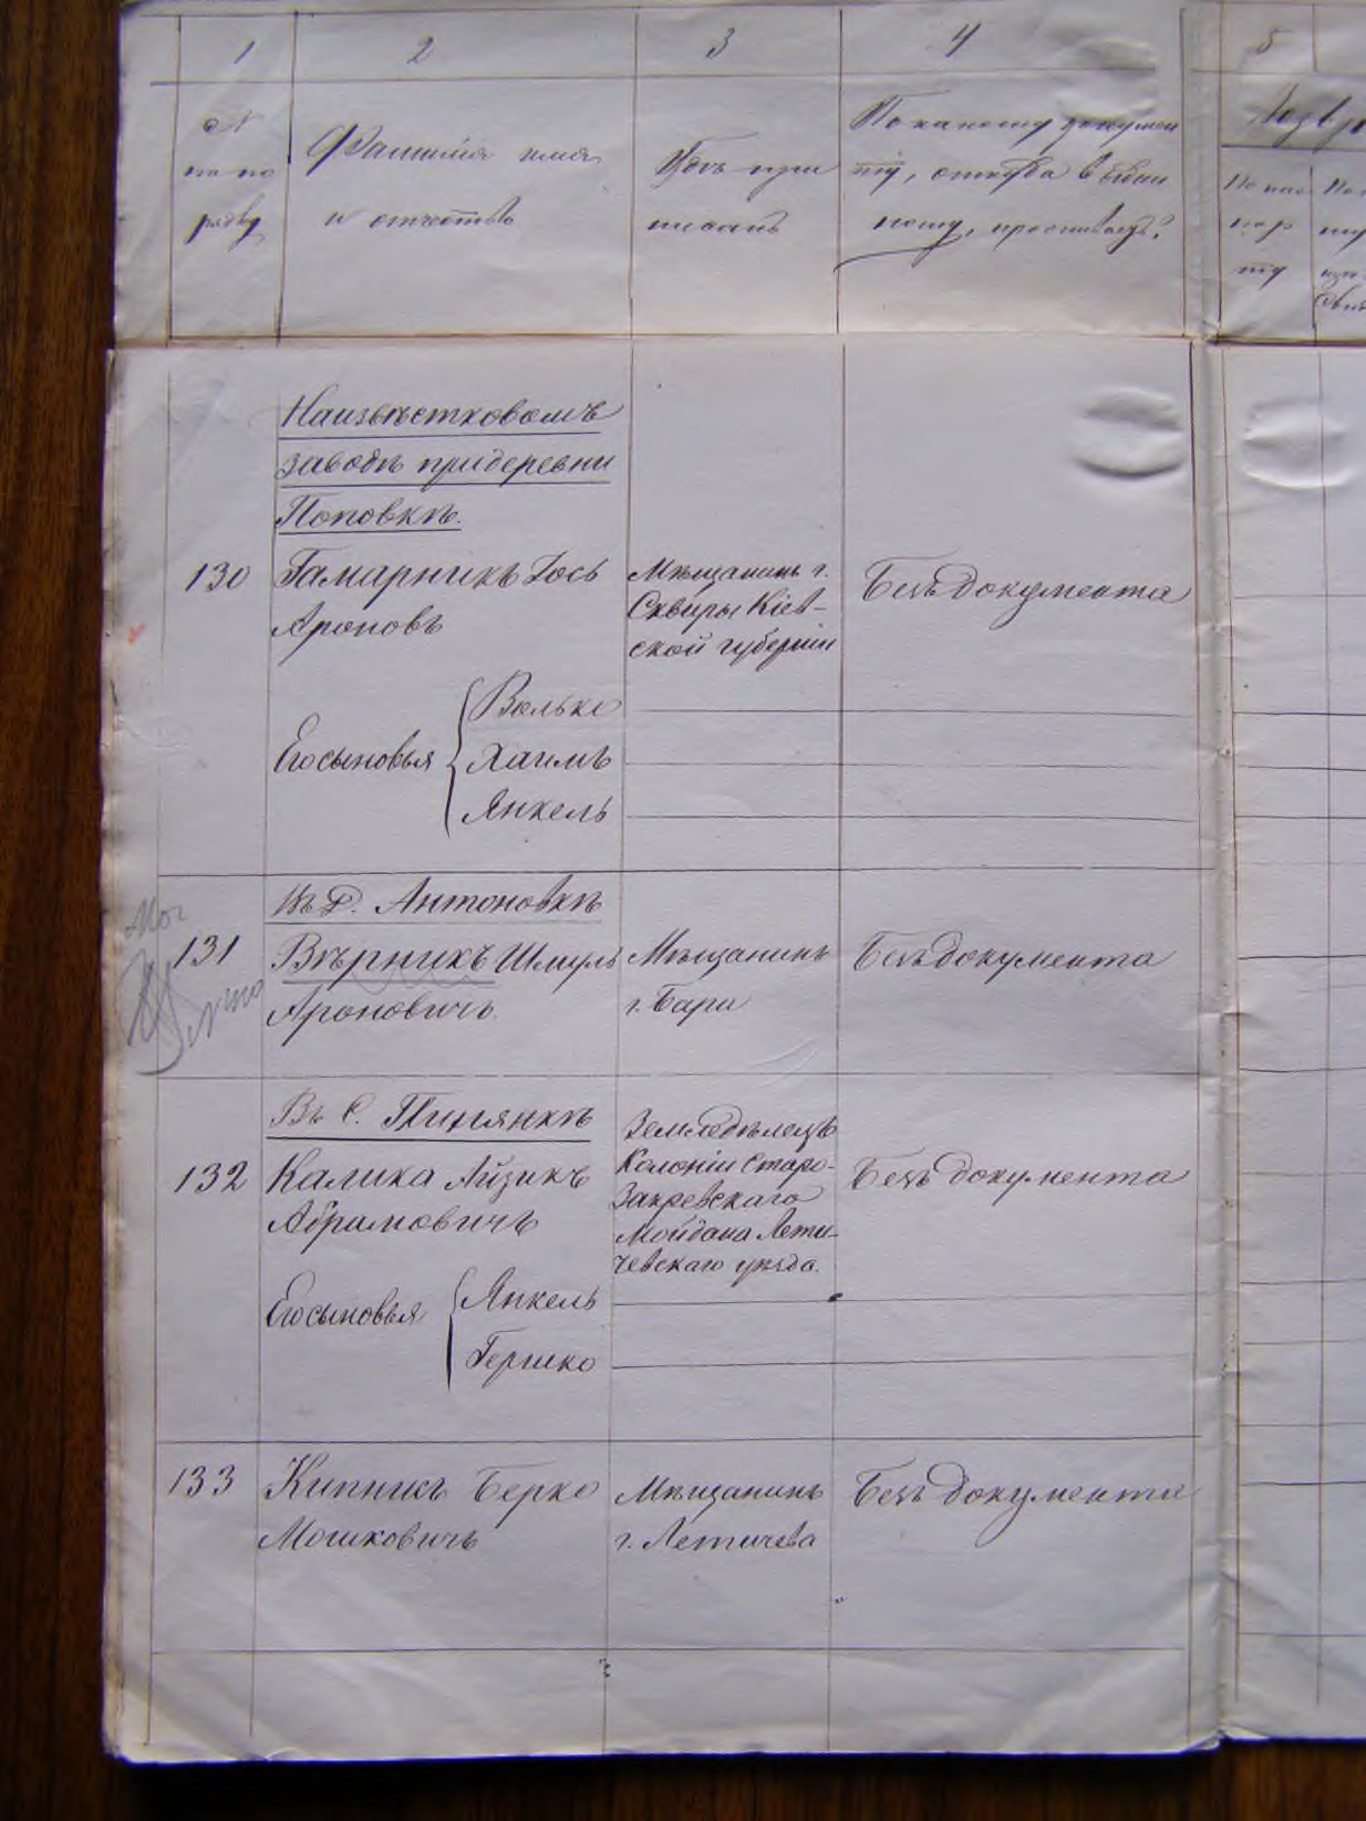 1 2 3 4 5
№ по по рядку
Фамилія имя
и отчество
Гдѣ при
писанъ
По какому докумен
ту, откуда выдан
ному, проживаетъ?
По пас
пор
ту
На известковомъ
заводѣ при деревни
Поповкѣ.
130 Гамарникъ Іось
Ароновъ
Мѣщанинъ г.
Сквиры Кіев-
ской губерніи
Безъ документа
Его сыновья
Волько
Хаимъ
Янкель
Въ д. Антоновкѣ
131 Вѣрникъ Шмуль
Ароновичъ
Мѣщанинъ
г. Бара
Безъ документа
Въ С.
132 Калика Айзикъ
Абрамовичъ
Земледѣлецъ
Колоніи Старо-
Закревскаго
Мойдана Лети-
чевскаго уѣзда.
Безъ документа
Его сыновья
Янкель
Гершко
133 Кипнисъ Берко
Мошковичъ
Мѣщанинъ
г. Летичева
Безъ документа